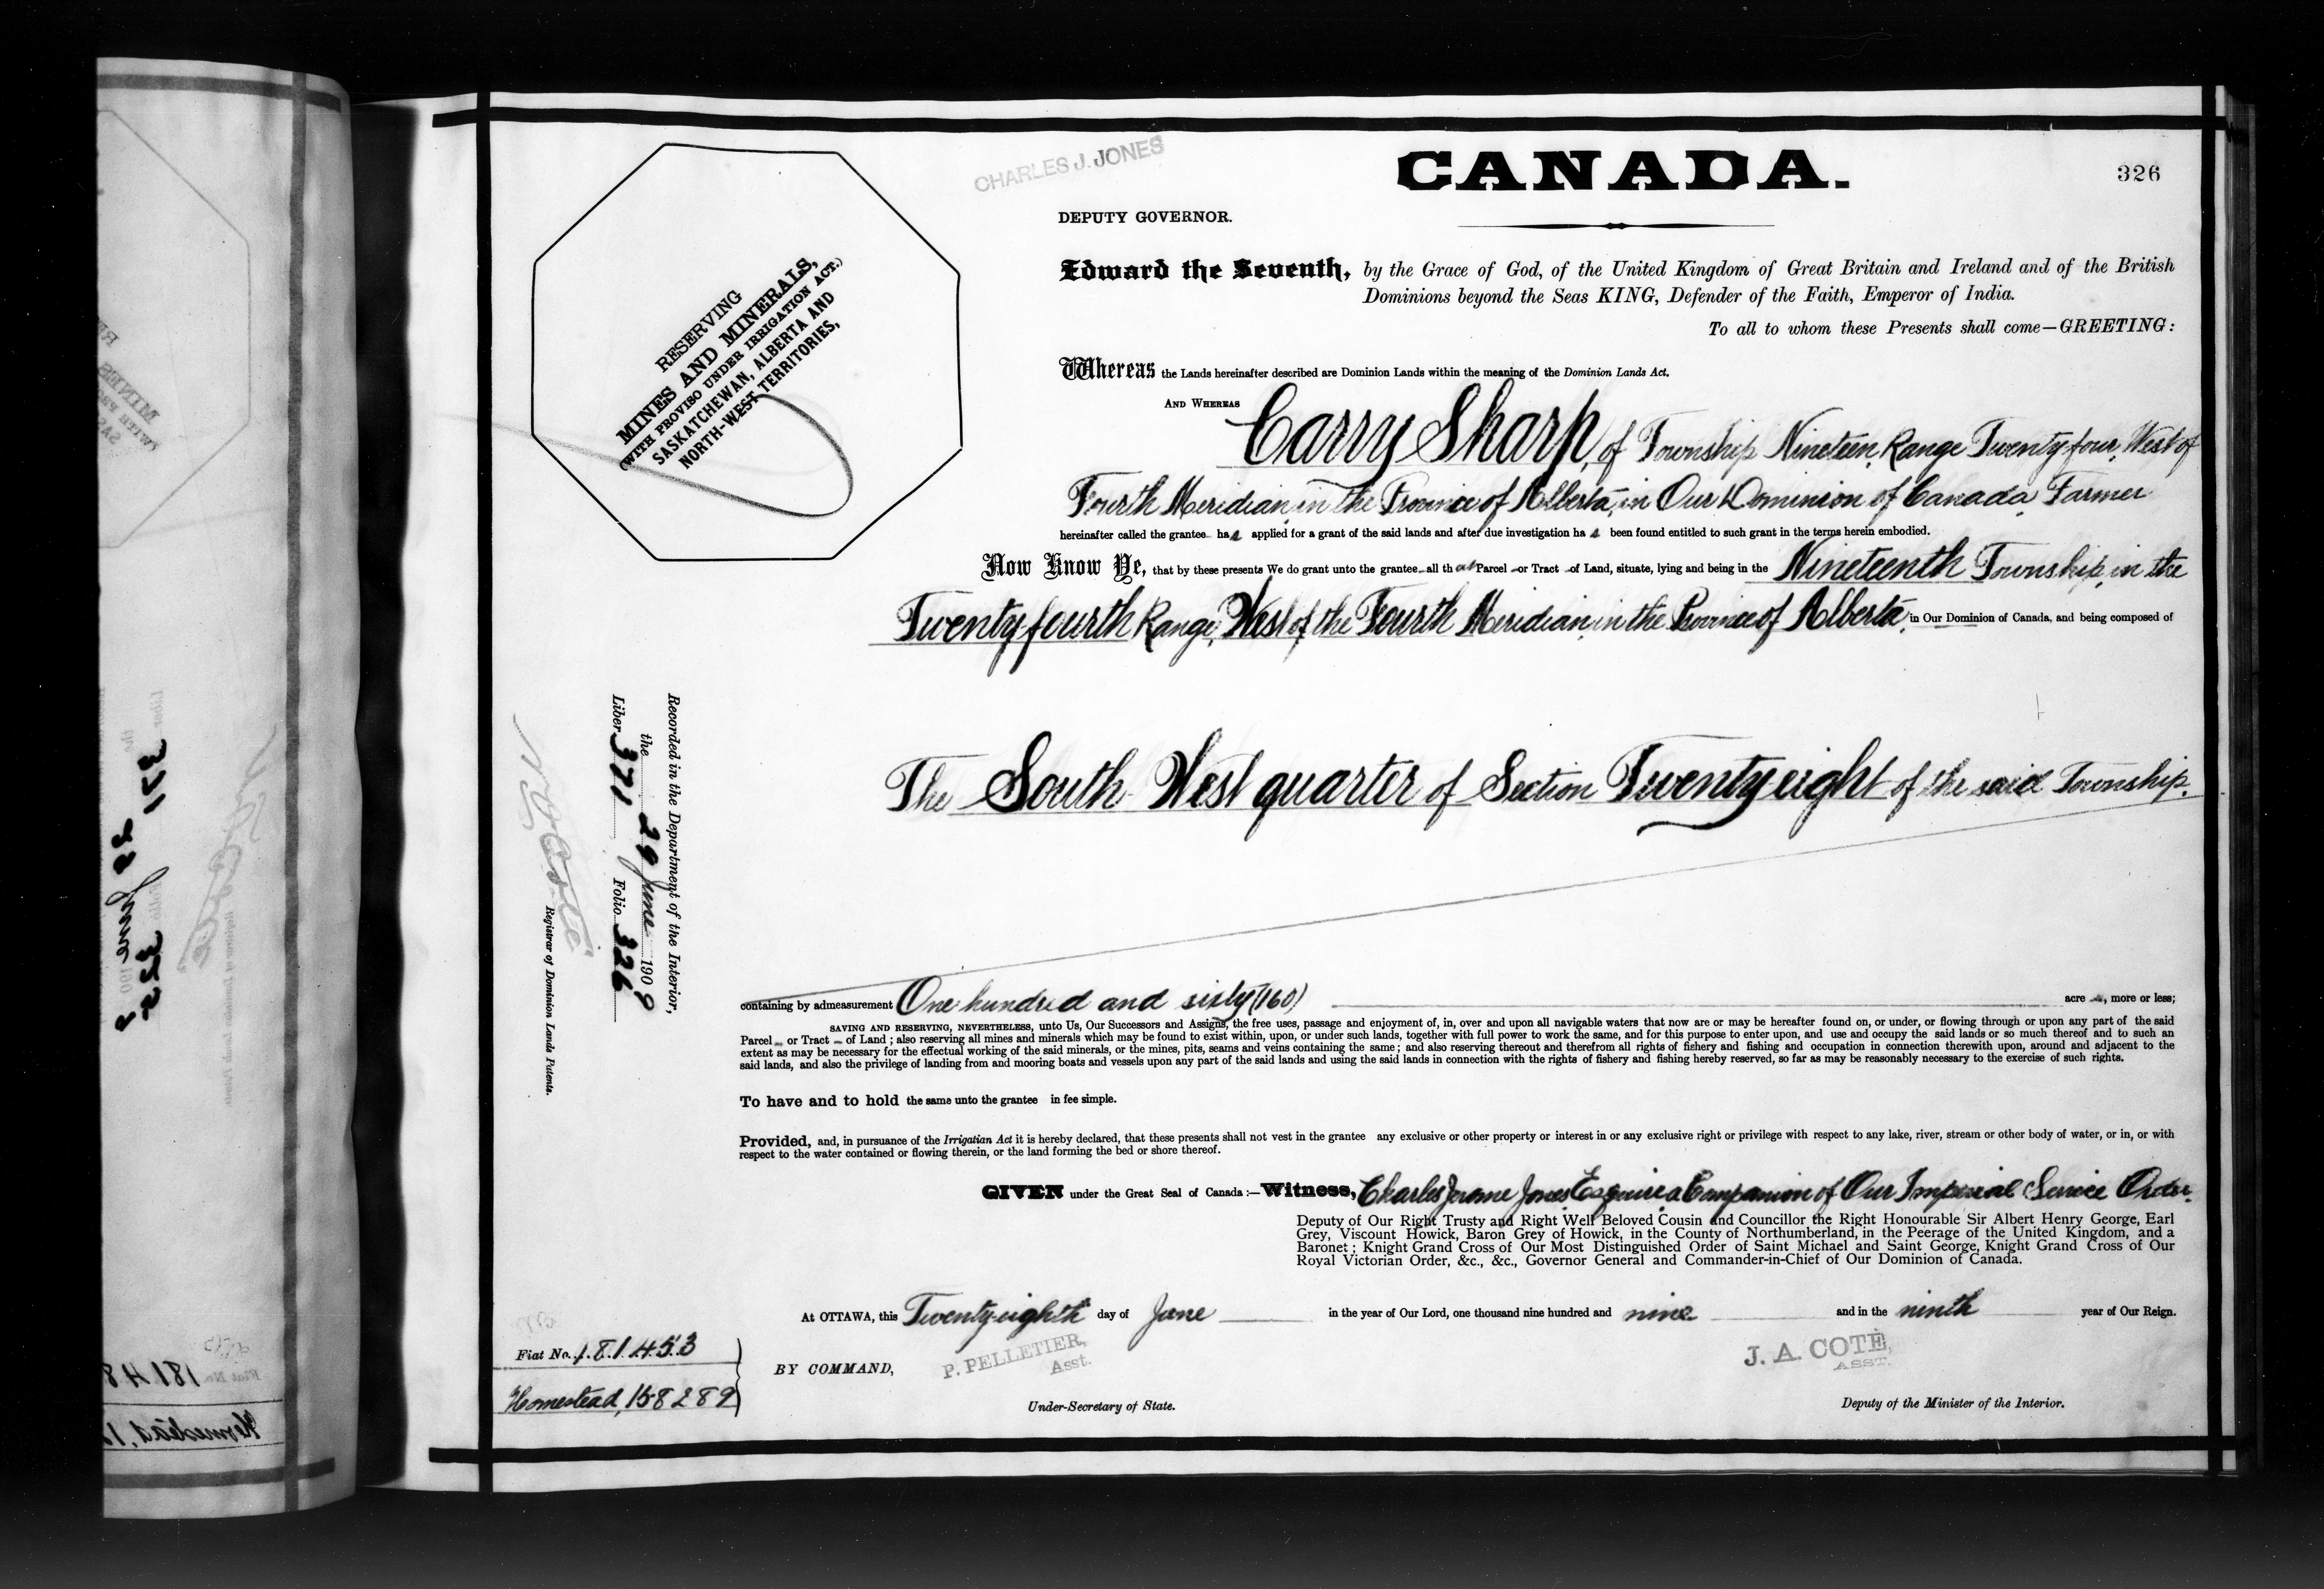 CHARLES J. JONES
CANADA.
326
DEPUTY GOVERNOR.
Edward the Seventh, by the Grace of God, of the United Kingdom of Great Britain and Ireland and of the British
Dominions beyond the Seas KING, Defender of the Faith, Emperor of India.
To all to whom these Presents shall come—GREETING:
RESERVING
MINES AND MINERALS,
(WITH PROVISO UNDER IRRIGATION ACT.)
SASKATCHEWAN, ALBERTA AND
NORTH-WEST TERRITORIES,
Whereas the Lands hereinafter described are Dominion Lands within the meaning of the Dominion Lands Act.
AND WHEREAS Carry Sharp, of Township Nineteen, Range Twenty-four, West of
Fourth Meridian, in the Province of Alberta, in Our Dominion of Canada, Farmer
hereinafter called the grantee has applied for a grant of the said lands and after due investigation has been found entitled to such grant in the terms herein embodied.
Now Know Ye, that by these presents We do grant unto the grantee all that Parcel or Tract of Land, situate, lying and being in the Nineteenth Township, in the
Twenty-fourth Range, West of the Fourth Meridian, in the Province of Alberta, in Our Dominion of Canada, and being composed of
The South West quarter of Section Twenty eight of the said Township.
Recorded in the Department of the Interior,
the 29 June 1909
Liber 371 Folio 326
N O Coté
Registrar of Dominion Lands Patents.
containing by admeasurement One hundred and sixty (160) acres, more or less;
SAVING AND RESERVING, NEVERTHELESS, unto Us, Our Successors and Assigns, the free uses, passage and enjoyment of, in, over and upon all navigable waters that now are or may be hereafter found on, or under, or flowing through or upon any part of the said
Parcel or Tract of Land; also reserving all mines and minerals which may be found to exist within, upon, or under such lands, together with full power to work the same, and for this purpose to enter upon, and use and occupy the said lands or so much thereof and to such an
extent as may be necessary for the effectual working of the said minerals, or the mines, pits, seams and veins containing the same; and also reserving thereout and therefrom all rights of fishery and fishing and occupation in connection therewith upon, around and adjacent to the
said lands, and also the privilege of landing from and mooring boats and vessels upon any part of the said lands and using the said lands in connection with the rights of fishery and fishing hereby reserved, so far as may be reasonably necessary to the exercise of such rights.
To have and to hold the same unto the grantee in fee simple.
Provided, and, in pursuance of the Irrigatian Act it is hereby declared, that these presents shall not vest in the grantee any exclusive or other property or interest in or any exclusive right or privilege with respect to any lake, river, stream or other body of water, or in, or with
respect to the water contained or flowing therein, or the land forming the bed or shore thereof.
GIVEN under the Great Seal of Canada:—Witness, Charles Jerome Jones Esquire, a Companion of Our Imperial Service Order.
Deputy of Our Right Trusty and Right Well Beloved Cousin and Councillor the Right Honourable Sir Albert Henry George, Earl
Grey, Viscount Howick, Baron Grey of Howick, in the County of Northumberland, in the Peerage of the United Kingdom, and a
Baronet; Knight Grand Cross of Our Most Distinguished Order of Saint Michael and Saint George, Knight Grand Cross of Our
Royal Victorian Order, &c., &c., Governor General and Commander-in-Chief of Our Dominion of Canada.
At OTTAWA, this Twenty-eighth day of June in the year of Our Lord, one thousand nine hundred and nine and in the ninth year of Our Reign.
Fiat No. 181453
Homestead, 158289
BY COMMAND,
P. PELLETIER,
Asst.
Under-Secretary of State.
J. A. COTÉ,
ASST.
Deputy of the Minister of the Interior.